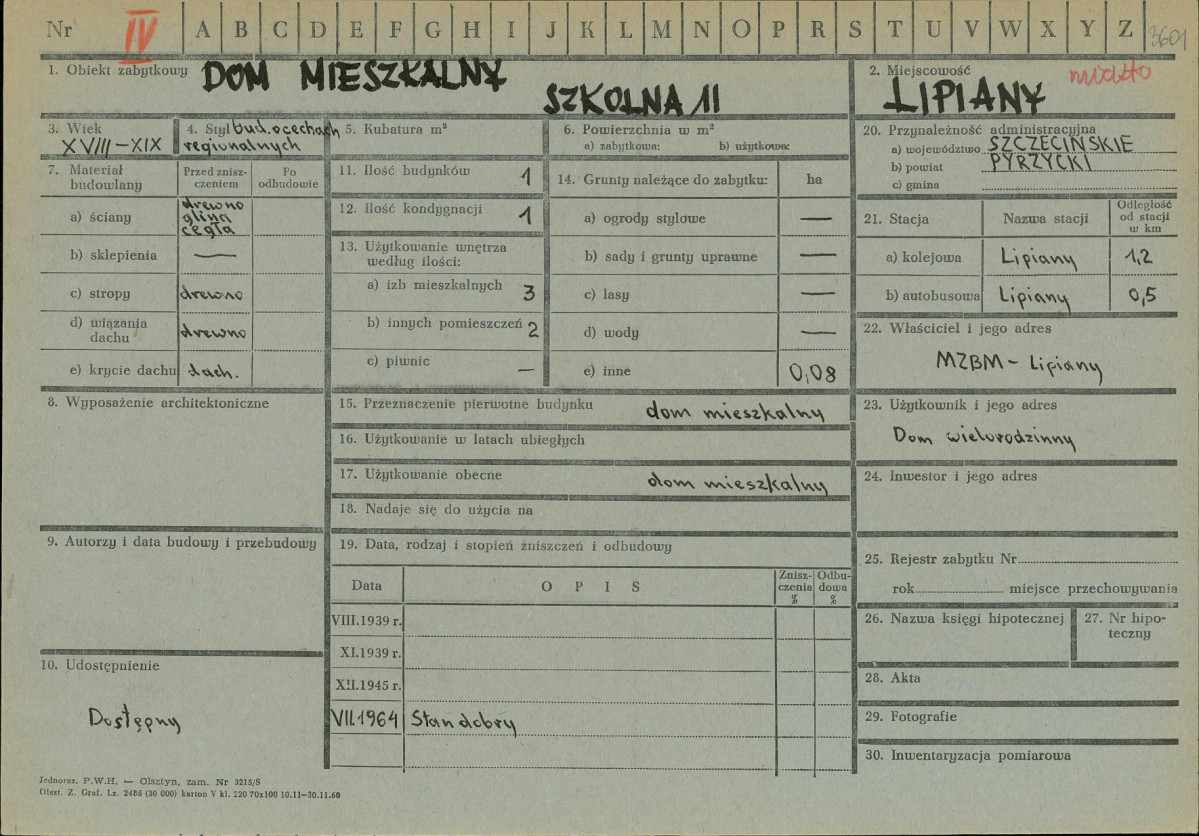 Nr IV A B C D E F G H I J K L M N O P R S T U V W X Y Z 3601
1. Obiekt zabytkowy DOM MIESZKALNY
SZKOLNA 11
2. Miejscowość miasto
LIPIANY
3. Wiek
XVIII–XIX
4. Styl bud. o cechach
regionalnych
5. Kubatura m³
6. Powierzchnia w m²
a) zabytkowa: b) użytkowa:
20. Przynależność administracyjna
a) województwo SZCZECIŃSKIE
b) powiat PYRZYCKI
c) gmina
7. Materiał
budowlany
Przed znisz-
czeniem
Po
odbudowie
a) ściany drewno
glina
cegła
b) sklepienia —
c) stropy drewno
d) wiązania
dachu drewno
e) krycie dachu dach.
11. Ilość budynków 1
12. Ilość kondygnacji 1
13. Użytkowanie wnętrza
według ilości:
a) izb mieszkalnych 3
b) innych pomieszczeń 2
c) piwnic —
14. Grunty należące do zabytku: ha
a) ogrody stylowe —
b) sady i grunty uprawne —
c) lasy —
d) wody —
e) inne 0,08
21. Stacja Nazwa stacji
Odległość
od stacji
w km
a) kolejowa Lipiany 1,2
b) autobusowa Lipiany 0,5
22. Właściciel i jego adres
MZBM – Lipiany
8. Wyposażenie architektoniczne
15. Przeznaczenie pierwotne budynku dom mieszkalny
16. Użytkowanie w latach ubiegłych
17. Użytkowanie obecne dom mieszkalny
18. Nadaje się do użycia na
23. Użytkownik i jego adres
Dom wielorodzinny
24. Inwestor i jego adres
9. Autorzy i data budowy i przebudowy
19. Data, rodzaj i stopień żniszczeń i odbudowy
Data O P I S
Znisz-
czenia
%
Odbu-
dowa
%
VIII.1939 r.
XI.1939 r.
XII.1945 r.
VII.1964 Stan dobry
25. Rejestr zabytku Nr
rok miejsce przechowywania
26. Nazwa księgi hipotecznej
27. Nr hipo-
teczny
28. Akta
29. Fotografie
30. Inwentaryzacja pomiarowa
10. Udostępnienie
Dostępny
Jednoraz. P.W.H. — Olsztyn, zam. Nr 3215/S
Olszt. Z. Graf. Lz. 2485 (30 000) karton V kl. 220 70x100 10.11–30.11.60